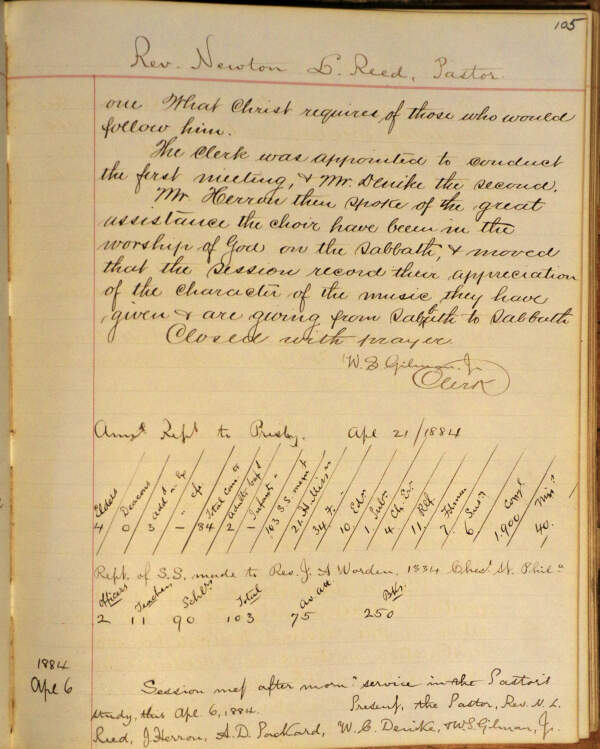 105
Rev. Newton L. Reed, Pastor.
one What Christ requires of those who would
follow him.
The Clerk was appointed to conduct
the first meeting, & Mr. Denike the second.
Mr. Herron then spoke of the great
assistance the choir have been in the
worship of God on the Sabbath, & moved
that the Session record their appreciation
of the character of the music they have
given & are giving from Sabbath to Sabbath
Closed with prayer.
W. S. Gilman, Jr.
Clerk
Rept to Presby. Apl 21/1884
Elders Deacons Add'd Ex " Cf. Total Com Adults bap'd Infants " S.S. mem H. Miss F. " Edn. Ch. Er. Rel. Sus. Cong'l Misc.
4 0 3 – 84 2 – 103 22 34 10 1 4 11 7 6 1.900 40.
Rept. of S.S. made to Rev. J. A. Worden, 1334 Chest. St. Phil.
Officers Teachers Schlrs Total Av. att. Bks.
2 11 90 103 75 250
1884
Apl 6
Session met after morn. service in the Pastor's
study, this Apl. 6, 1884. Present, the Pastor, Rev. N. L.
Reed, J. Herron, A. D. Packard, W. C. Denike, & W. S. Gilman, Jr.